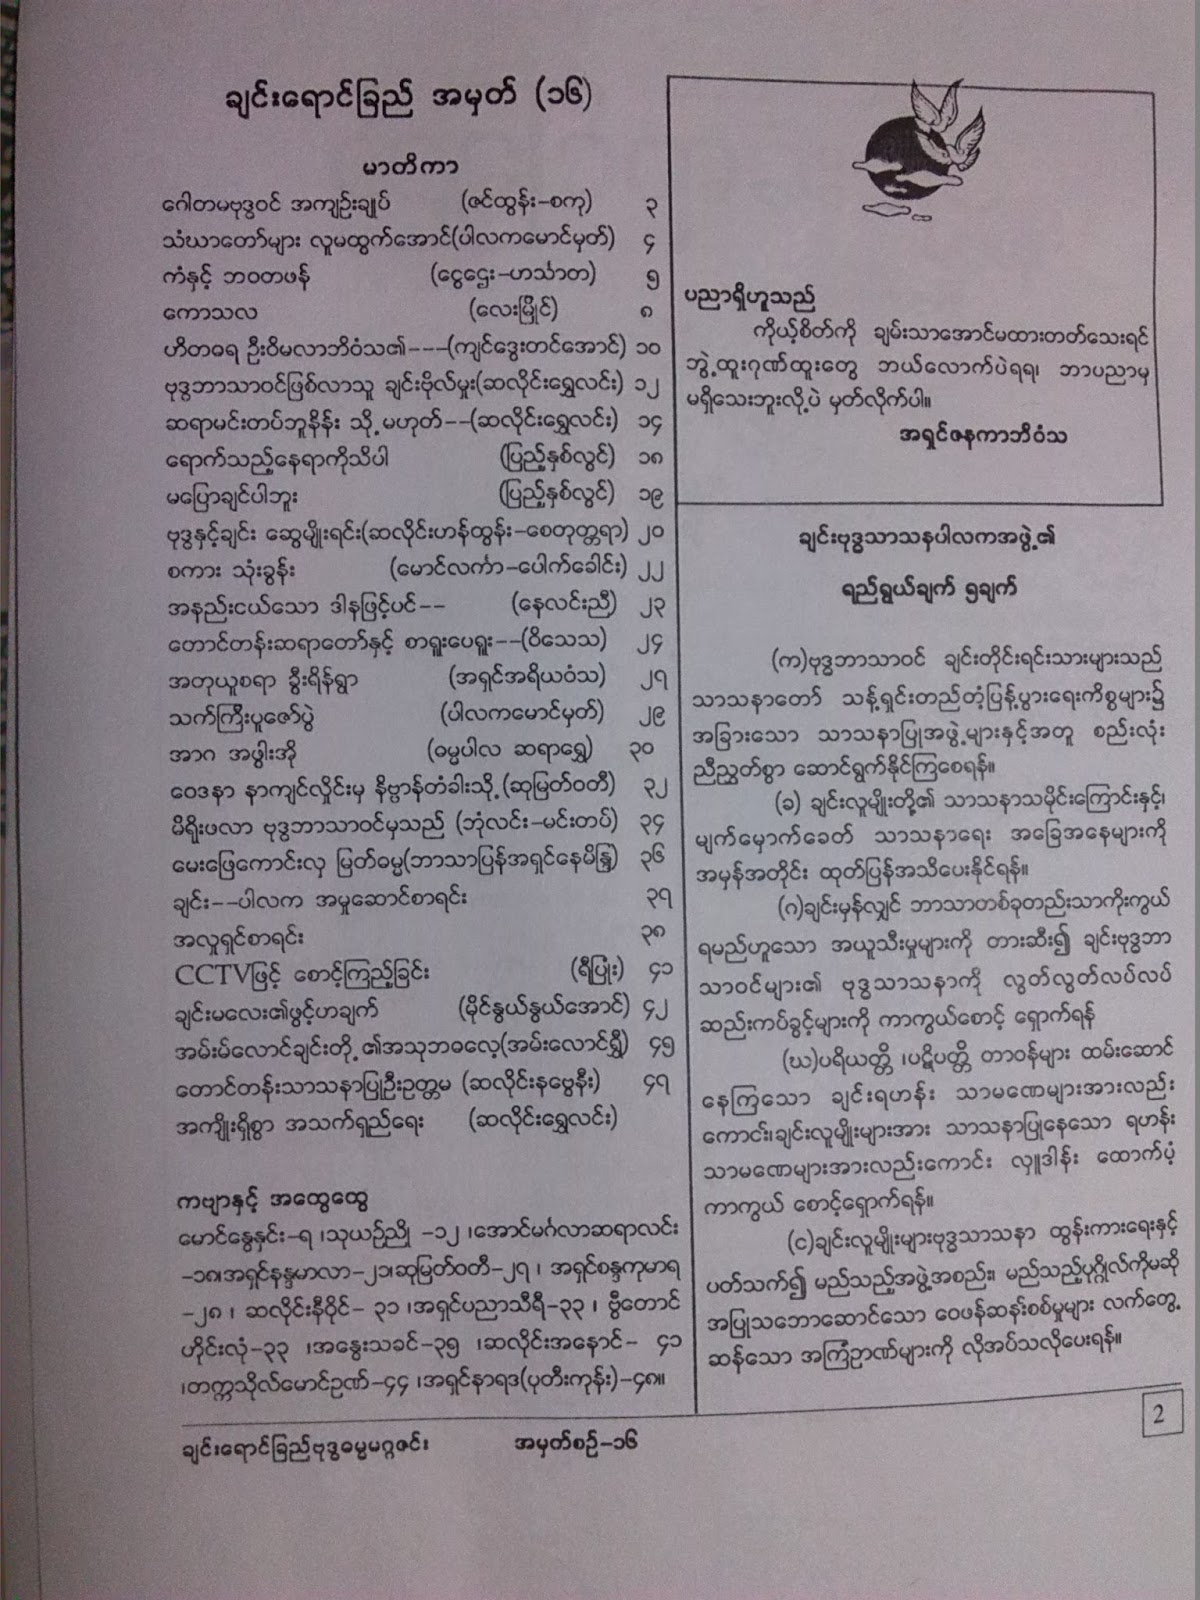 ချင်းရောင်ခြည် အမှတ် (၁၆)
မာတိကာ
ဂေါတမဗုဒ္ဓဝင် အကျဉ်းချုပ် (ဇင်ထွန်း-စကု) ၃
သံဃာတော်များ လူမထွက်အောင်(ပါလကမောင်မှတ်) ၄
ကံနှင့် ဘဝတဖန် (ငွေဌေး-ဟင်္သာတ) ၅
ကောသလ (လေးမြိုင်) ၈
ဟိတဓရ ဦးဝိမလာဘိဝံသ၏---(ကျင်ဒွေးတင်အောင်) ၁၀
ဗုဒ္ဓဘာသာဝင်ဖြစ်လာသူ ချင်းဗိုလ်မှူး(ဆလိုင်းရွှေလင်း) ၁၂
ဆရာမင်းတပ်ဘူနိန်း သို့မဟုတ်--(ဆလိုင်းရွှေလင်း) ၁၄
ရောက်သည့်နေရာကိုသိပါ (ပြည့်နှစ်လွင်) ၁၈
မပြောချင်ပါဘူး (ပြည့်နှစ်လွင်) ၁၉
ဗုဒ္ဓနှင့်ချင်း ဆွေမျိုးရင်း(ဆလိုင်းဟန်ထွန်း-စေတုတ္တရာ) ၂၀
စကား သုံးခွန်း (မောင်လင်္ကာ-ပေါက်ခေါင်း) ၂၂
အနည်းငယ်သော ဒါနဖြင့်ပင်-- (နေလင်းညီ) ၂၃
တောင်တန်းဆရာတော်နှင့် စာရူးပေရူး--(ဝိသေသ) ၂၄
အတုယူစရာ ခွီးရိန်ရွာ (အရှင်အရိယဝံသ) ၂၇
သက်ကြီးပူဇော်ပွဲ (ပါလကမောင်မှတ်) ၂၉
အာဂ အဖွါးအို (ဓမ္မပါလ ဆရာရွှေ) ၃၀
ဝေဒနာ နာကျင်လှိုင်းမှ နိဗ္ဗာန်တံခါးသို့(ဆုမြတ်ဝတီ) ၃၂
မိရိုးဖလာ ဗုဒ္ဓဘာသာဝင်မှသည် (ဘုံလင်း-မင်းတပ်) ၃၄
မေးဖြေကောင်းလှ မြတ်ဓမ္မ(ဘာသာပြန်အရှင်နေမိန္ဒ) ၃၆
ချင်း--ပါလက အမှုဆောင်စာရင်း ၃၇
အလှူရှင်စာရင်း ၃၈
CCTVဖြင့် စောင့်ကြည့်ခြင်း (ရီပြုံး) ၄၁
ချင်းမလေး၏ဖွင့်ဟချက် (မိုင်နွယ်နွယ်အောင်) ၄၂
အမ်းမ်လောင်ချင်းတို့၏အသုဘဓလေ့(အမ်းလောင်ရှီ) ၄၅
တောင်တန်းသာသနာပြုဦးဥတ္တမ (ဆလိုင်းနဗွေနီး) ၄၇
အကျိုးရှိစွာ အသက်ရှည်ရေး (ဆလိုင်းရွှေလင်း)
ကဗျာနှင့် အထွေထွေ
မောင်နွေနှင်း-၇ ၊သုယဉ်ညို -၁၂ ၊အောင်မင်္ဂလာဆရာလင်း
-၁၈၊အရှင်နန္ဒမာလာ-၂၁၊ဆုမြတ်ဝတီ-၂၇ ၊ အရှင်စန္ဒကုမာရ
-၂၈ ၊ ဆလိုင်းနီဝိုင်- ၃၁ ၊အရှင်ပညာသီရီ-၃၃ ၊ ဗွီတောင်
ဟိုင်းလုံ-၃၃ ၊အနွေးသခင်-၃၅ ၊ဆလိုင်းအနောင်- ၄၁
၊တက္ကသိုလ်မောင်ဉာဏ်-၄၄ ၊အရှင်နာရဒ(ပုတီးကုန်း)-၄၈။
ချင်းရောင်ခြည်ဗုဒ္ဓဓမ္မမဂ္ဂဇင်း အမှတ်စဉ်-၁၆
ပညာရှိဟူသည်
ကိုယ့်စိတ်ကို ချမ်းသာအောင်မထားတတ်သေးရင်
ဘွဲ့ထူးဂုဏ်ထူးတွေ ဘယ်လောက်ပဲရရ၊ ဘာပညာမှ
မရှိသေးဘူးလို့ပဲ မှတ်လိုက်ပါ။
အရှင်ဇနကာဘိဝံသ
ချင်းဗုဒ္ဓသာသနပါလကအဖွဲ့၏
ရည်ရွယ်ချက် ၅ချက်
(က)ဗုဒ္ဓဘာသာဝင် ချင်းတိုင်းရင်းသားများသည်
သာသနာတော် သန့်ရှင်းတည်တံ့ပြန့်ပွားရေးကိစ္စများ၌
အခြားသော သာသနာပြုအဖွဲ့များနှင့်အတူ စည်းလုံး
ညီညွတ်စွာ ဆောင်ရွက်နိုင်ကြစေရန်။
(ခ) ချင်းလူမျိုးတို့၏ သာသနာသမိုင်းကြောင်းနှင့်၊
မျက်မှောက်ခေတ် သာသနာရေး အခြေအနေများကို
အမှန်အတိုင်း ထုတ်ပြန်အသိပေးနိုင်ရန်။
(ဂ)ချင်းမှန်လျှင် ဘာသာတစ်ခုတည်းသာကိုးကွယ်
ရမည်ဟူသော အယူသီးမှုများကို တားဆီး၍ ချင်းဗုဒ္ဓဘာ
သာဝင်များ၏ ဗုဒ္ဓသာသနာကို လွတ်လွတ်လပ်လပ်
ဆည်းကပ်ခွင့်များကို ကာကွယ်စောင့် ရှောက်ရန်
(ဃ)ပရိယတ္တိ ၊ပဋိပတ္တိ တာဝန်များ ထမ်းဆောင်
နေကြသော ချင်းရဟန်း သာမဏေများအားလည်း
ကောင်း၊ချင်းလူမျိုးများအား သာသနာပြုနေသော ရဟန်း
သာမဏေများအားလည်းကောင်း လှူဒါန်း ထောက်ပံ့
ကာကွယ် စောင့်ရှောက်ရန်။
(င)ချင်းလူမျိုးများဗုဒ္ဓသာသနာ ထွန်းကားရေးနှင့်
ပတ်သက်၍ မည်သည့်အဖွဲ့အစည်း၊ မည်သည့်ပုဂ္ဂိုလ်ကိုမဆို
အပြုသဘောဆောင်သော ဝေဖန်ဆန်းစစ်မှုများ လက်တွေ့
ဆန်သော အကြံဉာဏ်များကို လိုအပ်သလိုပေးရန်။
2